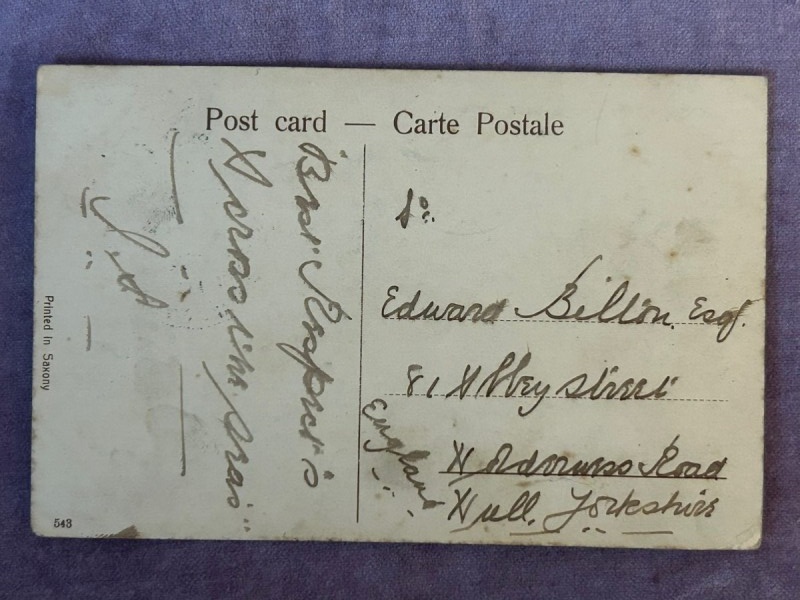 Post card — Carte Postale
Best Respects
Across the Seas
J. S.
To:
Edward Billon. Esq.
81 Abbey Street
Holderness Road
Hull. Yorkshire
England
Printed in Saxony
543